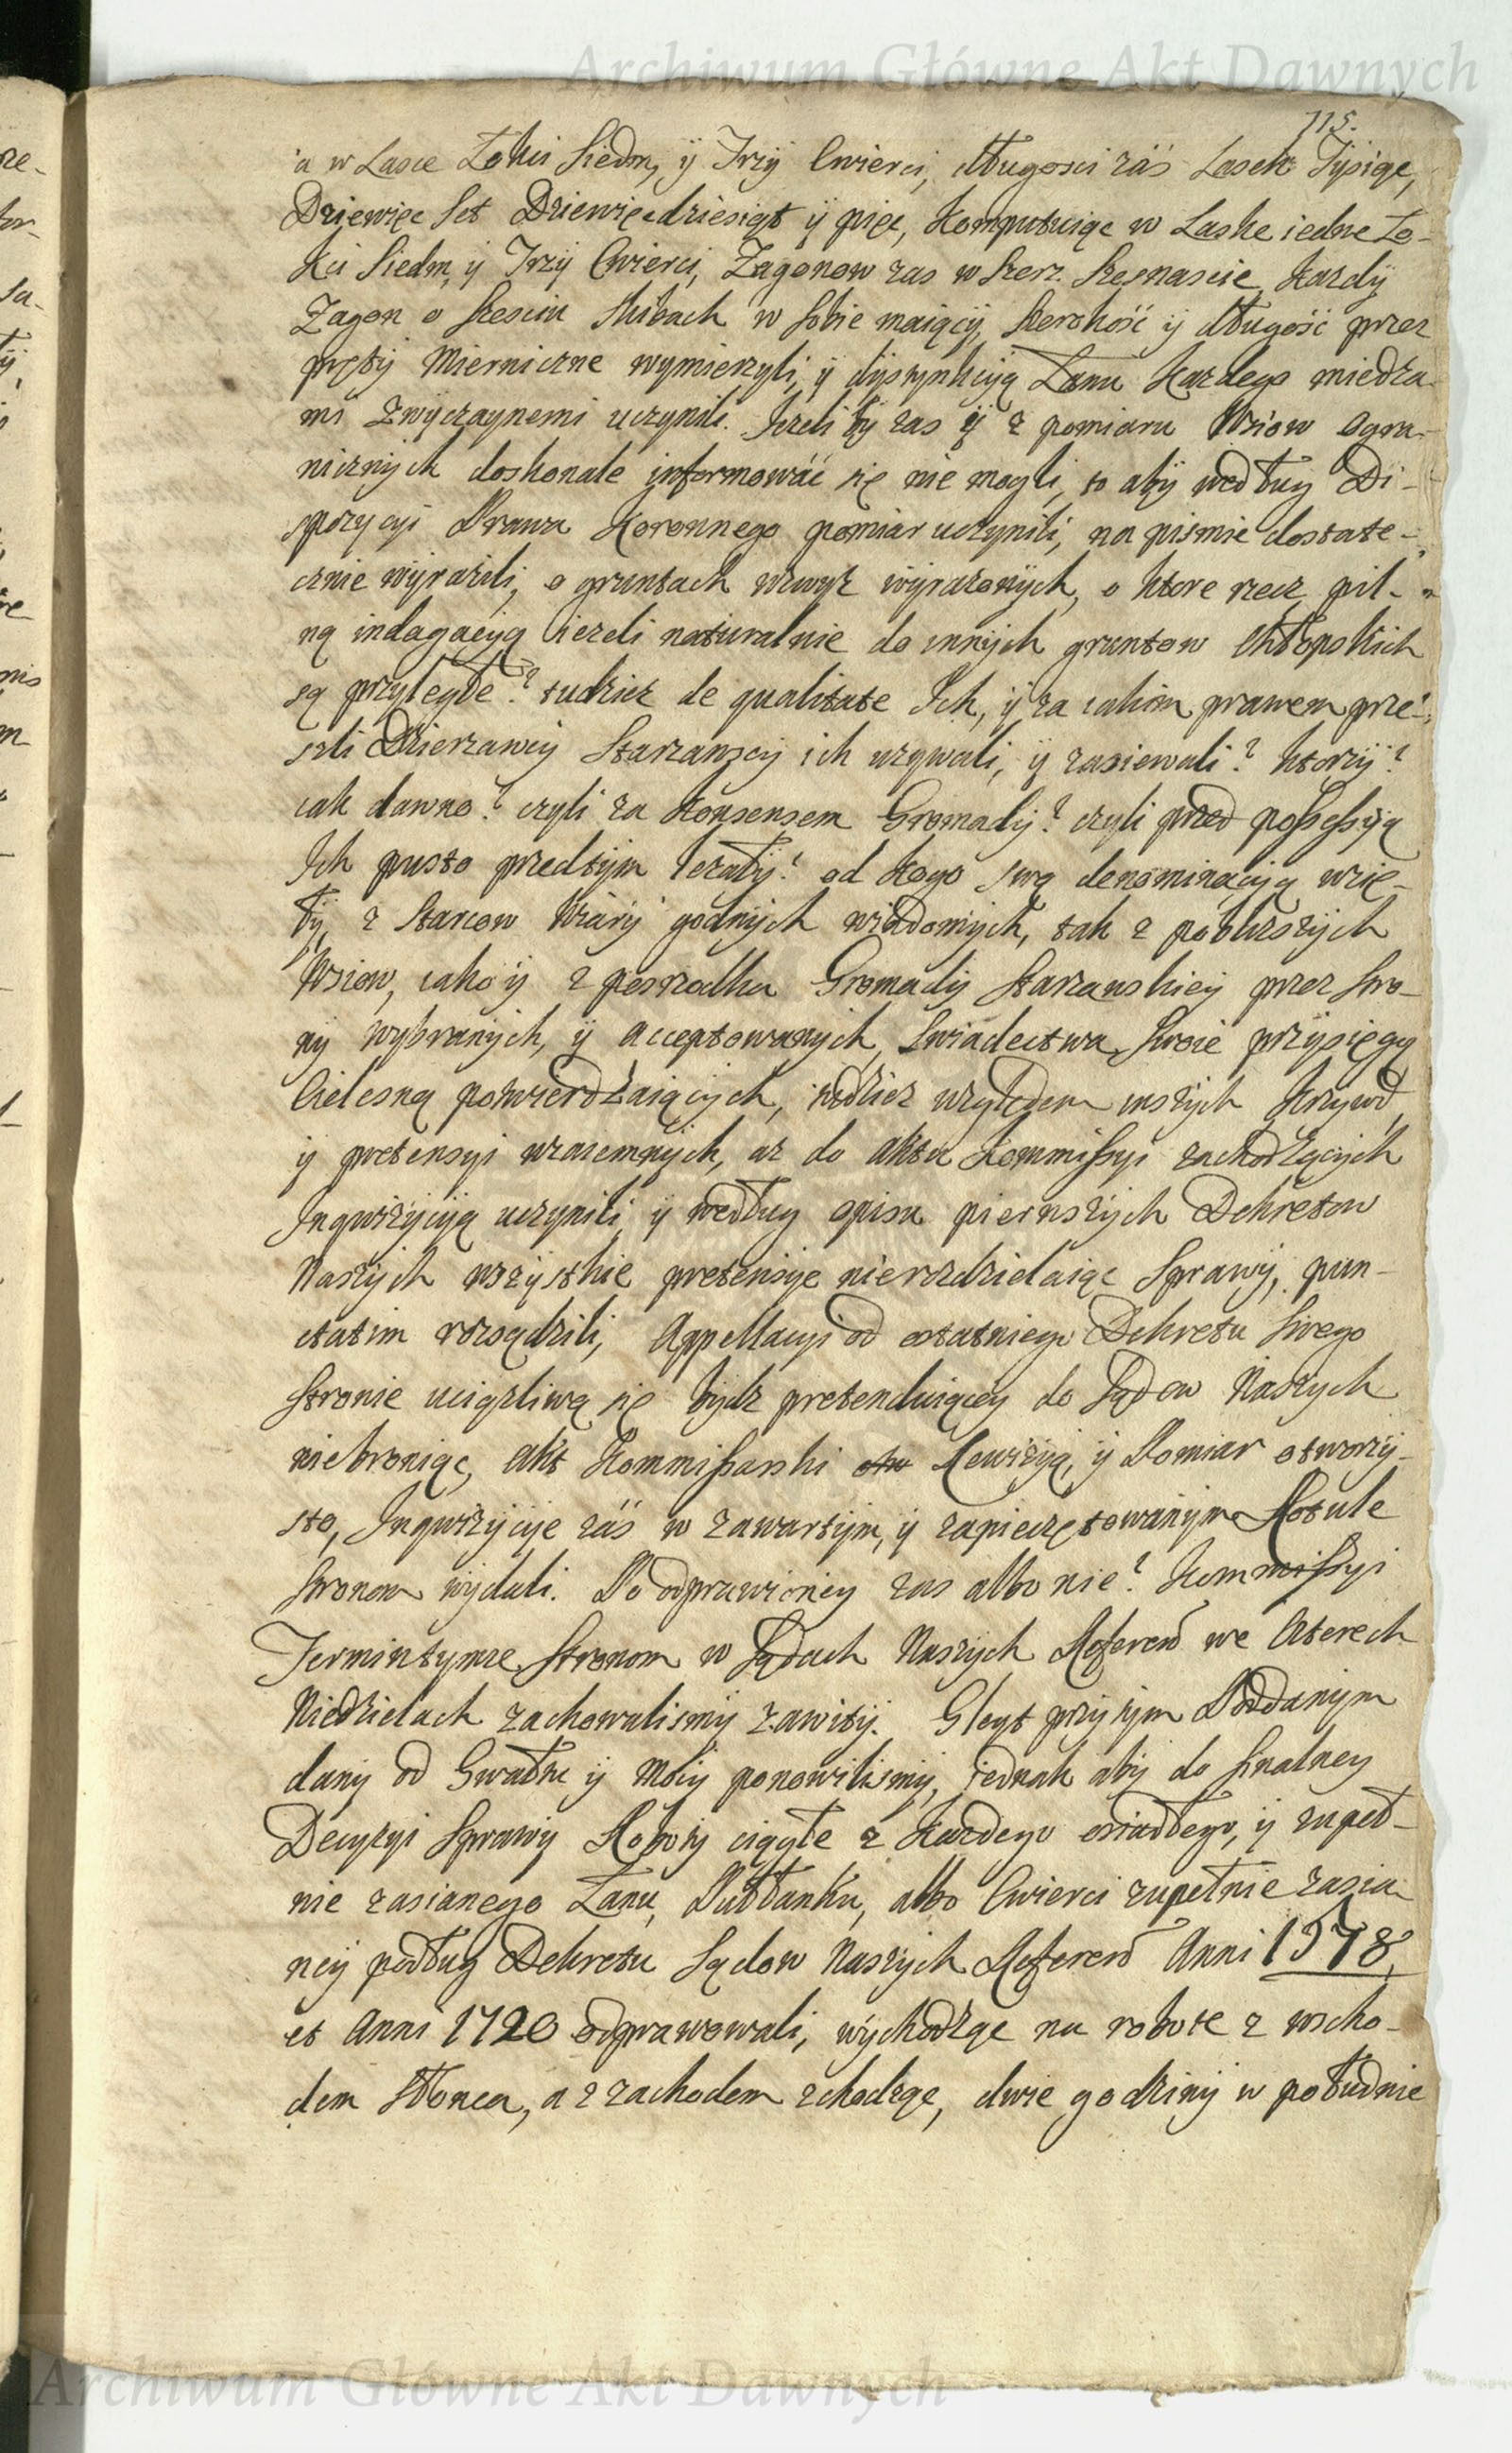 Archiwum Główne Akt Dawnych
115.
a w Lasce Łokci Siedm, ÿ Trzÿ Cwierci, długosci záś Lasek Tÿsiąc,
Dziewięc Set Dziewięcdziesiąt ÿ pięc, Komputuiąc w Laske iedne Ło-
kci Siedm, ÿ Trzÿ Cwierci, Zagonow zas w Szerz Szesnascie, kazdÿ
Zagon o szesciu Skibach w sobie maiącÿ, szerokość ÿ długość przez
prętÿ Miernicze wymierzyli, ÿ dÿstynkcÿą Łanu Kazdego miedza-
mi zwÿczaynemi uczynili. Jezli bÿ zas ÿ z pomiaru Wsiow ogra-
nicznÿch doskonale informowáć się nie mogli, to abÿ według Di-
spozycyi Prawa Koronnego pomiar uczynili, na pismie dostate-
cznie wÿrazili, o gruntach wzwÿz wÿrazonÿch, o ktore rzecz, pil-
ną indagacÿą iezeli naturalnie do innÿch gruntow Chłopskich
są przyległe? tudziez de qualitate Jch, ÿ za iakim prawem prze-
szli Dzierzawcÿ Starzanscÿ ich uzywali, ÿ zasiewali? ktorzÿ?
iak dawno? czyli za konsensem Gromadÿ? czyli przed possessÿą
Jch pusto przedtÿm lezałÿ? od kogo swą denominacÿą wzię-
łÿ, z Starcow Wiarÿ godnÿch wiadomÿch, tak z pobliszÿch
Wsiow, iako ÿ z posrzodka Gromadÿ Starzanskieÿ przez Stro-
nÿ wybranÿch, ÿ acceptowanÿch, Swiadectwa Swoie przÿsięgą
Cielesną potwierdzaiącÿch, tudziez względem inszÿch krzywd,
ÿ pretensyi wzaiemnÿch, az do aktu Kommissyi zachodzącÿch
Jnqwizÿcÿą uczynili, ÿ według opisu pierwszÿch Dekretow
Naszÿch wszÿstkie pretensÿe nierozdzielaiąc Sprawÿ, pun-
ctatim rozsądzili, Appellacyi od ostatniego Dekretu Swego
Stronie uciązliwą się bÿdz pretenduiącey do Sądow Naszych
niebroniąc, akt Kommissarski Rewizÿą, ÿ Pomiar otworzÿ-
sto, Jnqwizÿcÿe záś w zawartÿm, ÿ zapieczętowanÿm Rotule
Stronom wÿdali. Po odprawioney zas albo nie? Kommissyi
Termin tymze Stronom w Sądach Naszÿch Referend we Czterech
Niedzielach zachowalismÿ zawitÿ. Gleyt przÿtÿm Poddanÿm
danÿ od Gwałtu ÿ Mocÿ ponowilismÿ, jednak abÿ do finalney
Decyzyi Sprawÿ Robotÿ ciągłe z kazdego osiadłego, ÿ zupeł-
nie zasianego Łanu, Pułłanku, albo Cwierci zupełnie zasia-
neÿ podług Dekretu Sądow Naszÿch Referend Anni 1578,
et Anni 1720 odprawowali, wÿchodząc na robote z wscho-
dem Słonca, a z zachodem schodząc, dwie godzinÿ w południe
Archiwum Główne Akt Dawnych